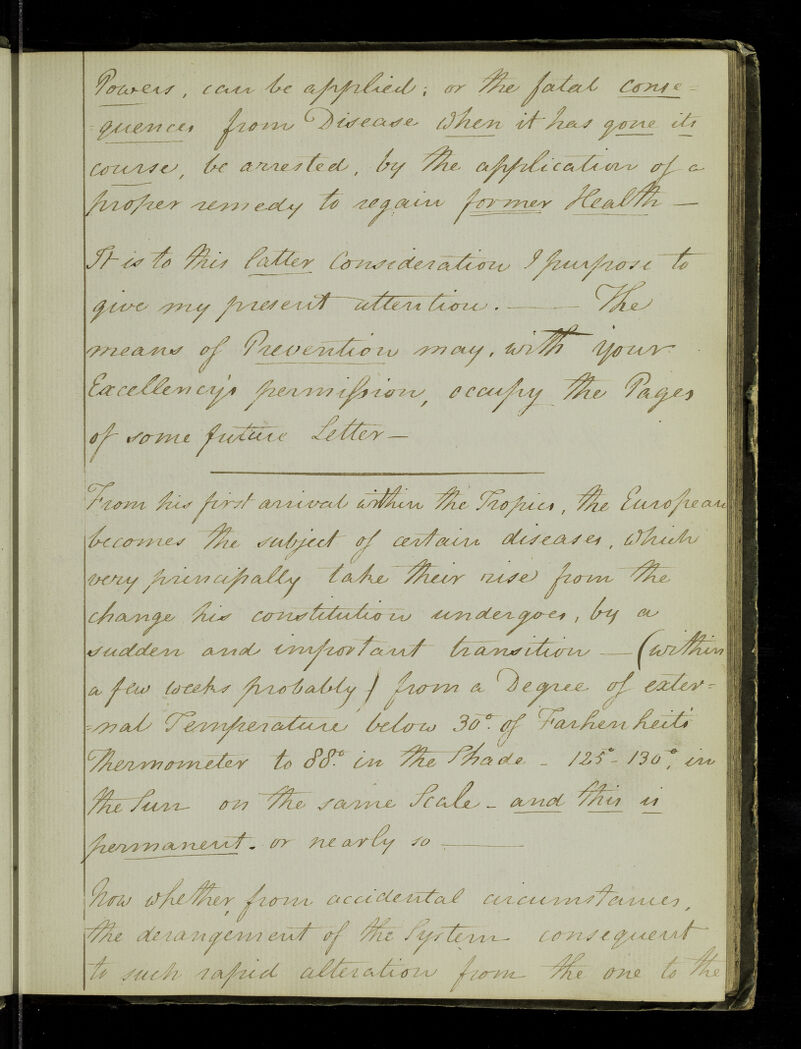 Powers, can be applied; or the fatal conse=
=quences from Disease when it has gone its
course, be arrested, by the application of a
proper remedy to regain former Health —
It is to this latter Consideration I purpose to
give my present attention. — The
means of Prevention may, with Your
Excellency's permission, occupy the Pages
of some future Letter —
From his first arrival within the Tropics, the European
becomes the subject of certain diseases, which
very principally take their rise from the
change his constitution undergoes, by a
sudden and important transition — (within
a few weeks probably) from a Degree of exter=
=nal Temperature below 30°. of Farhenheit's
Thermometer to 88.° in the Shade - 125° - 130°, in
the Sun on the same Scale - and this is
permanent. or nearly so —
Now whether, from accidental circumstances,
the derangement of the System consequent
to such rapid alteration from the one to the